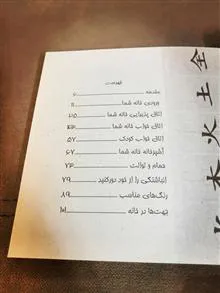 فهرست
مقدمه ۶
ورودی خانه شما ۱۱
اتاق پذیرایی خانه شما ۲۵
اتاق خواب شما ۴۳
اتاق خواب کودک ۵۷
آشپزخانه شما ۶۷
حمام و توالت ۷۳
انباشتگی را از خود دور کنید ۷۹
رنگ‌های مناسب ۸۹
جهت‌ها در خانه ۱۰۱
金
土
火
木